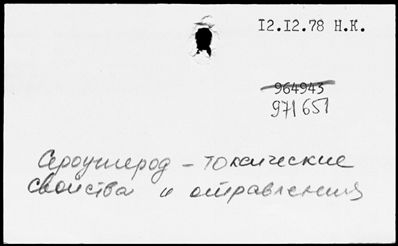 I2.I2.78 Н.К.
964943
971651
Сероуглерод – токсические
свойства и отравления